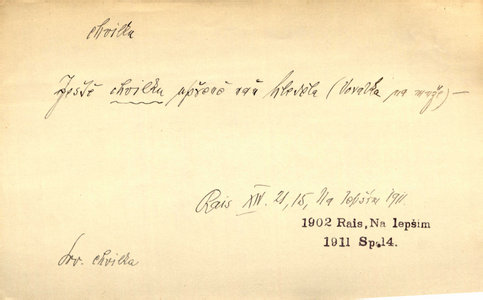 chvilka
Ještě chvilku upřeně naň hleděla (Voralka na muže) —
Rais XIV. 21, 15, Na lepším 1911.
1902 Rais, Na lepším
1911 Sp.14.
Srv. chvilka